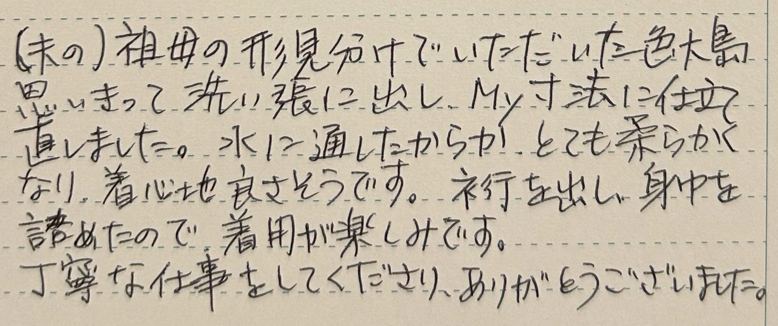 (夫の)祖母の形見分けでいただいた色大島
思いきって洗い張に出し、My寸法に仕立て
直しました。水に通したからか、とても柔らかく
なり、着心地良さそうです。裄を出し、身巾を
詰めたので、着用が楽しみです。
丁寧な仕事をしてくださり、ありがとうございました。